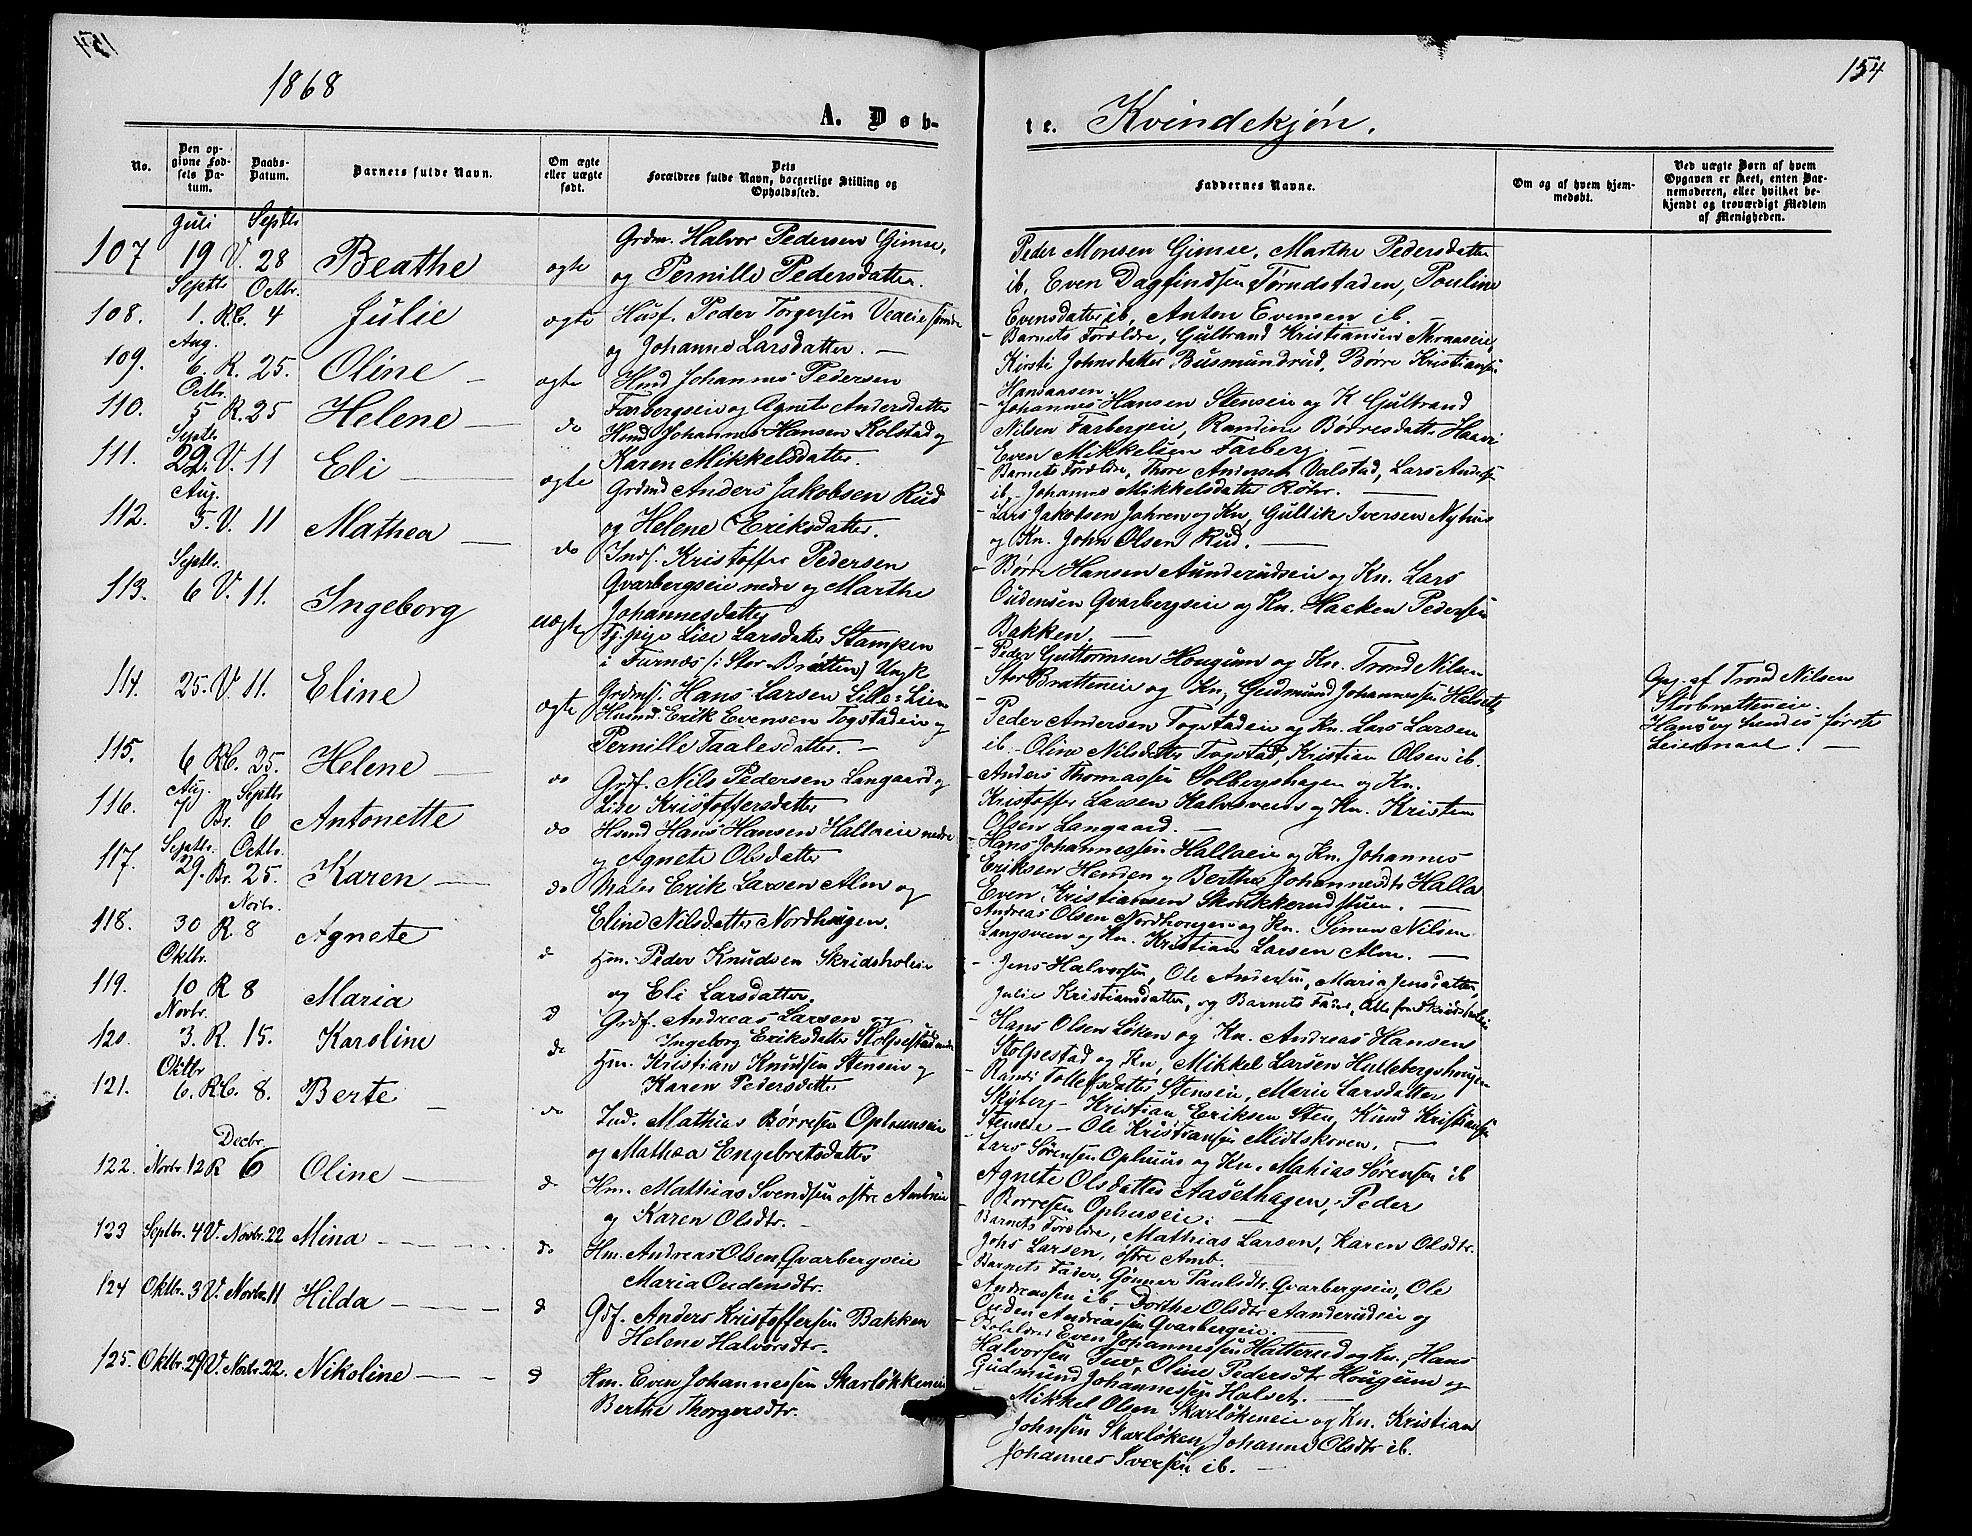 154
1868
A. Døb-
te. Kvindekjøn.
No.
Den op-
givne Fød-
sels Da-
tum.
Daabs-
Datum.
Barnets fulde Navn.
Om ægte
eller uægte
født.
Dets
Forældres fulde Navn, borgerlige Stilling og
Opholdssted.
Faddernes Navne.
Om og af hvem hjem-
medøbt.
Ved uægte Børn af hvem
Opgaven er skeet, enten Bar-
nemoderen, eller hvilket be-
kjendt og troværdigt Medlem
af Menigheden.
Juli Septbr
107 19 V. 28 Beathe ægte Grdm. Halvor Pedersen Gimse,
og Pernille Pedersdatter.
Peder Monsen Gimse, Marthe Pedersdatter
ib. Even Dagfindsen Tørudstaden, Pouline
Evensdatter ib, Anton Evensen ib.
Septbr Octbr.
108. 1. Rb. 4 Julie ægte Husf. Peder Torgersen Veaeie søndre
og Johanne Larsdatter. —
– Barnets Forældre, Gulbrand Kristiansen
Kirsti Johnsdatter Busmundrud, Børre Kristiansen
Aug.
109. 6. R. 25. Oline — ægte Hmd Johannes Pedersen
Farbergseie og Agnete Andersdatter
– Johannes Hansen Stenseie og K Gulbrand
Nilsen Farbergeie, Randine Børresdatter
Even Mikkelsen Farberg. —
Octbr.
110. 5 R. 25 Helene — do Hsmd Johannes Hansen Kolstad og
Karen Mikkelsdatter.
– Barnets Forældre, Thore Andersen Valstad, Lars Andersen
ib, Johanne Mikkelsdatter Røhr. —
Septbr
111. 22. V. 11 Eli — ægte Grdmd Anders Jakobsen Rud
og Helene Eriksdatter.
– Lars Jakobsen Jahren og Kn, Gullik Iversen Nyhus
og Kn. John Olsen Rud. —
Aug.
112. 5. V. 11 Mathea — do Inds. Kristoffer Pedersen
Qvarbergseie nedre og Marthe
Johannesdatter
– Børre Hansen Aanderudseie og Kn. Lars
Oudensen Qvarbergseie og Kn. Haaken Pedersen
Bakken. —
Septbr.
113. 6 V. 11. Ingeborg uægte Tj.pige Lise Larsdatter Stampen
i Furnæs /: Stor Bratten) Ungk
Grdms. Hans Larsen Lille-Lien
– Peder Guttormsen Hougum og Kn. Trond Nilsen
Stor Bratteneie og Kn, Gudmund Johannessen Helset
Opg. af Trond Nilsen
Storbratteneie.
Hans og hendes første
Leiermaal. —
114. 25. V. 11. Eline ægte Husmd. Erik Evensen Togstadeie og
Pernille Taalesdatter. —
Peder Andersen Togstadeie og Kn. Lars Larsen
ib. – Oline Nilsdatter Togstad, Kristian Olsen ib.
115. 6 Rb. 25. Helene — do Grdf. Nils Pedersen Langaard og
Lise Kristoffersdatter
– Anders Thomassen Solbergshagen og Kn.
Kristoffer Larsen Kalvsveen og Kn. Kristen
Olsen Langaard. —
Aug. Septbr
116. 7 Br. 6 Antonette do Hsmd Hans Hansen Hallaeie nedre
og Agnete Olsdatter
– Hans Johannessen Hallaeie og Kn. Johannes
Eriksen Henden og Berthe Johannesdtr Halla
Even Kristiansen Skrukkerudstuen. —
Septbr. Octbr.
117. 29. Br. 25. Karen — do Maler Erik Larsen Alm og
Eline Nilsdatter Nordhagen.
– Andreas Olsen Nordhougen og Kn. Simen Nilsen
Langsveen og Kn. Kristian Larsen Alm. —
Novbr.
118. 30 R. 8 Agnete d Hm. Peder Knudsen Skridsholeie
og Eli Larsdatter.
– Jens Halvorsen, Ole Andersen, Maria Jensdatter,
Julie Kristiansdatter, og Barnets Fader, Alle fra Skridsholeie
Oktbr.
119. 10 R 8 Maria d Grdf. Andreas Larsen og
Ingeborg Eriksdatter Stolpestad nedre
– Hans Olsen Løken og Kn. Andreas Hansens
Stolpestad og Kn, Mikkel Larsen Hallebergshougen
Novbr.
120. 3. R. 15. Karoline do Hm. Kristian Knudsen Stenseie og
Karen Pedersdatter
– Randi Tollefsdatter Stenseie, Marie Larsdatter
Skyberg – Kristian Eriksen Sten, Knud Kristiansen
Stenseie – Ole Kristiansen Midtskoven. —
Oktbr
121. 6. Rb. 8. Berte — do Ind. Mathias Børresen Ophuuseie
og Mathea Engebretsdatter
– Lars Sørensen Ophuus og Kn. Mathias Sørensen ib
Agnete Olsdatter Aasethagen, Peder
Børresen Ophuseie. —
Decbr.
122. Novbr. 12 R 6 Oline — d Hm. Mathias Svendsen østre Ambseie
og Karen Olsdtr. –
– Barnets Forældre, Mathias Larsen, Karen Olsdtr.
Johs Larsen, østre Amb. —
123 Septbr. 4 V. Novbr. 22 Mina — do Hm. Andreas Olsen, Qvarbergseie
Maria Oudensdtr.
– Barnets Fader, Gønner Paulsdtr. Qvarbergseie, Ole
Andreassen ib. – Dorthe Olsdtr Aanderudeie og
Ouden Andreassen Qvarbergeie. —
124 Oktbr. 3 V. Novbr. 11 Hilda — d Gdf. Anders Kristoffersen Bakken
Helene Halvorsdtr.
Even Johannessen Hatterud og Kn., Hans
Halvorsen Tuv, Oline Pedersdtr Hougum og
Gudmund Johannessen Halset. —
125. Oktbr. 29 V. Novbr. 22. Nikoline — d Hm. Even Johannessen Skarløkkeneie
Berthe Thorgersdtr.
– Mikkel Olsen Skarløkeneie og Kn. Kristian
Johnsen Skarløken, Johanne Olsdtr ib.
Johannes Iversen ib. —